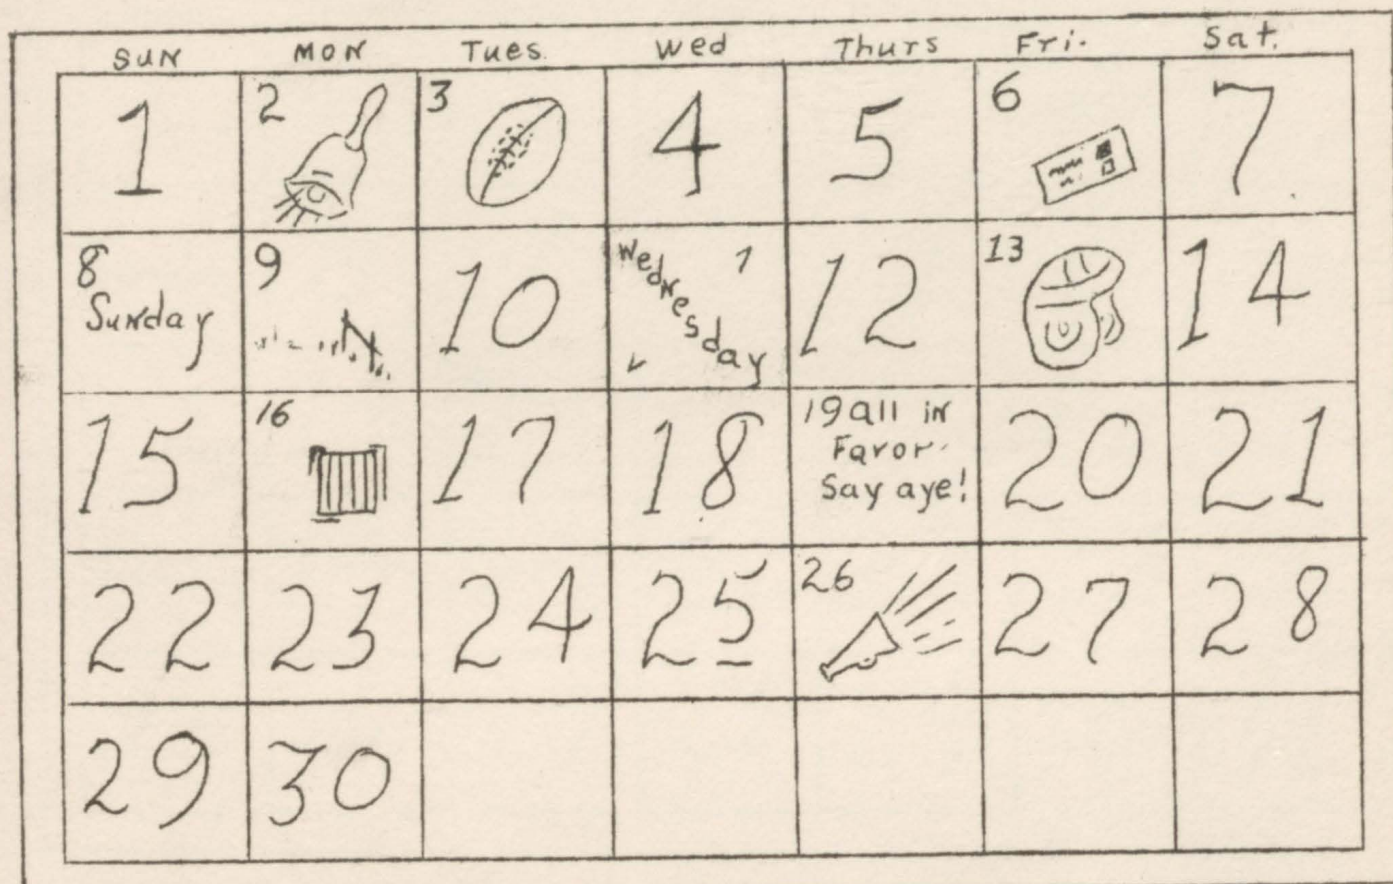 SUN MON Tues. Wed Thurs Fri. Sat.
1 2 3 4 5 6 7
8 9 10 Wednesday 1 12 13 14
Sunday
15 16 17 18 19 all in 20 21
Favor
Say aye!
22 23 24 25 26 27 28
29 30